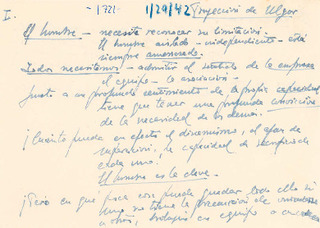 I. - 1721 - 1/29/42 Proyección de Ulgor
El hombre - necesita reconocer su limitación.
El hombre aislado - independiente - está
siempre amenazado.
Todos necesitamos - admitir el sentido de la empresa
el equipo - la asociación -
Junto a un profundo sentimiento de la propia capacidad
tiene que tener una profunda convicción
de la necesidad de los demás.
¡Cuánto puede en efecto el dinamismo, el afán de
superación, la capacidad de
cada uno!
El hombre es la clave -
¡Pero en que poca cosa puede quedar todo ello si
uno no tiene la precaución de
a otros, en equipo a